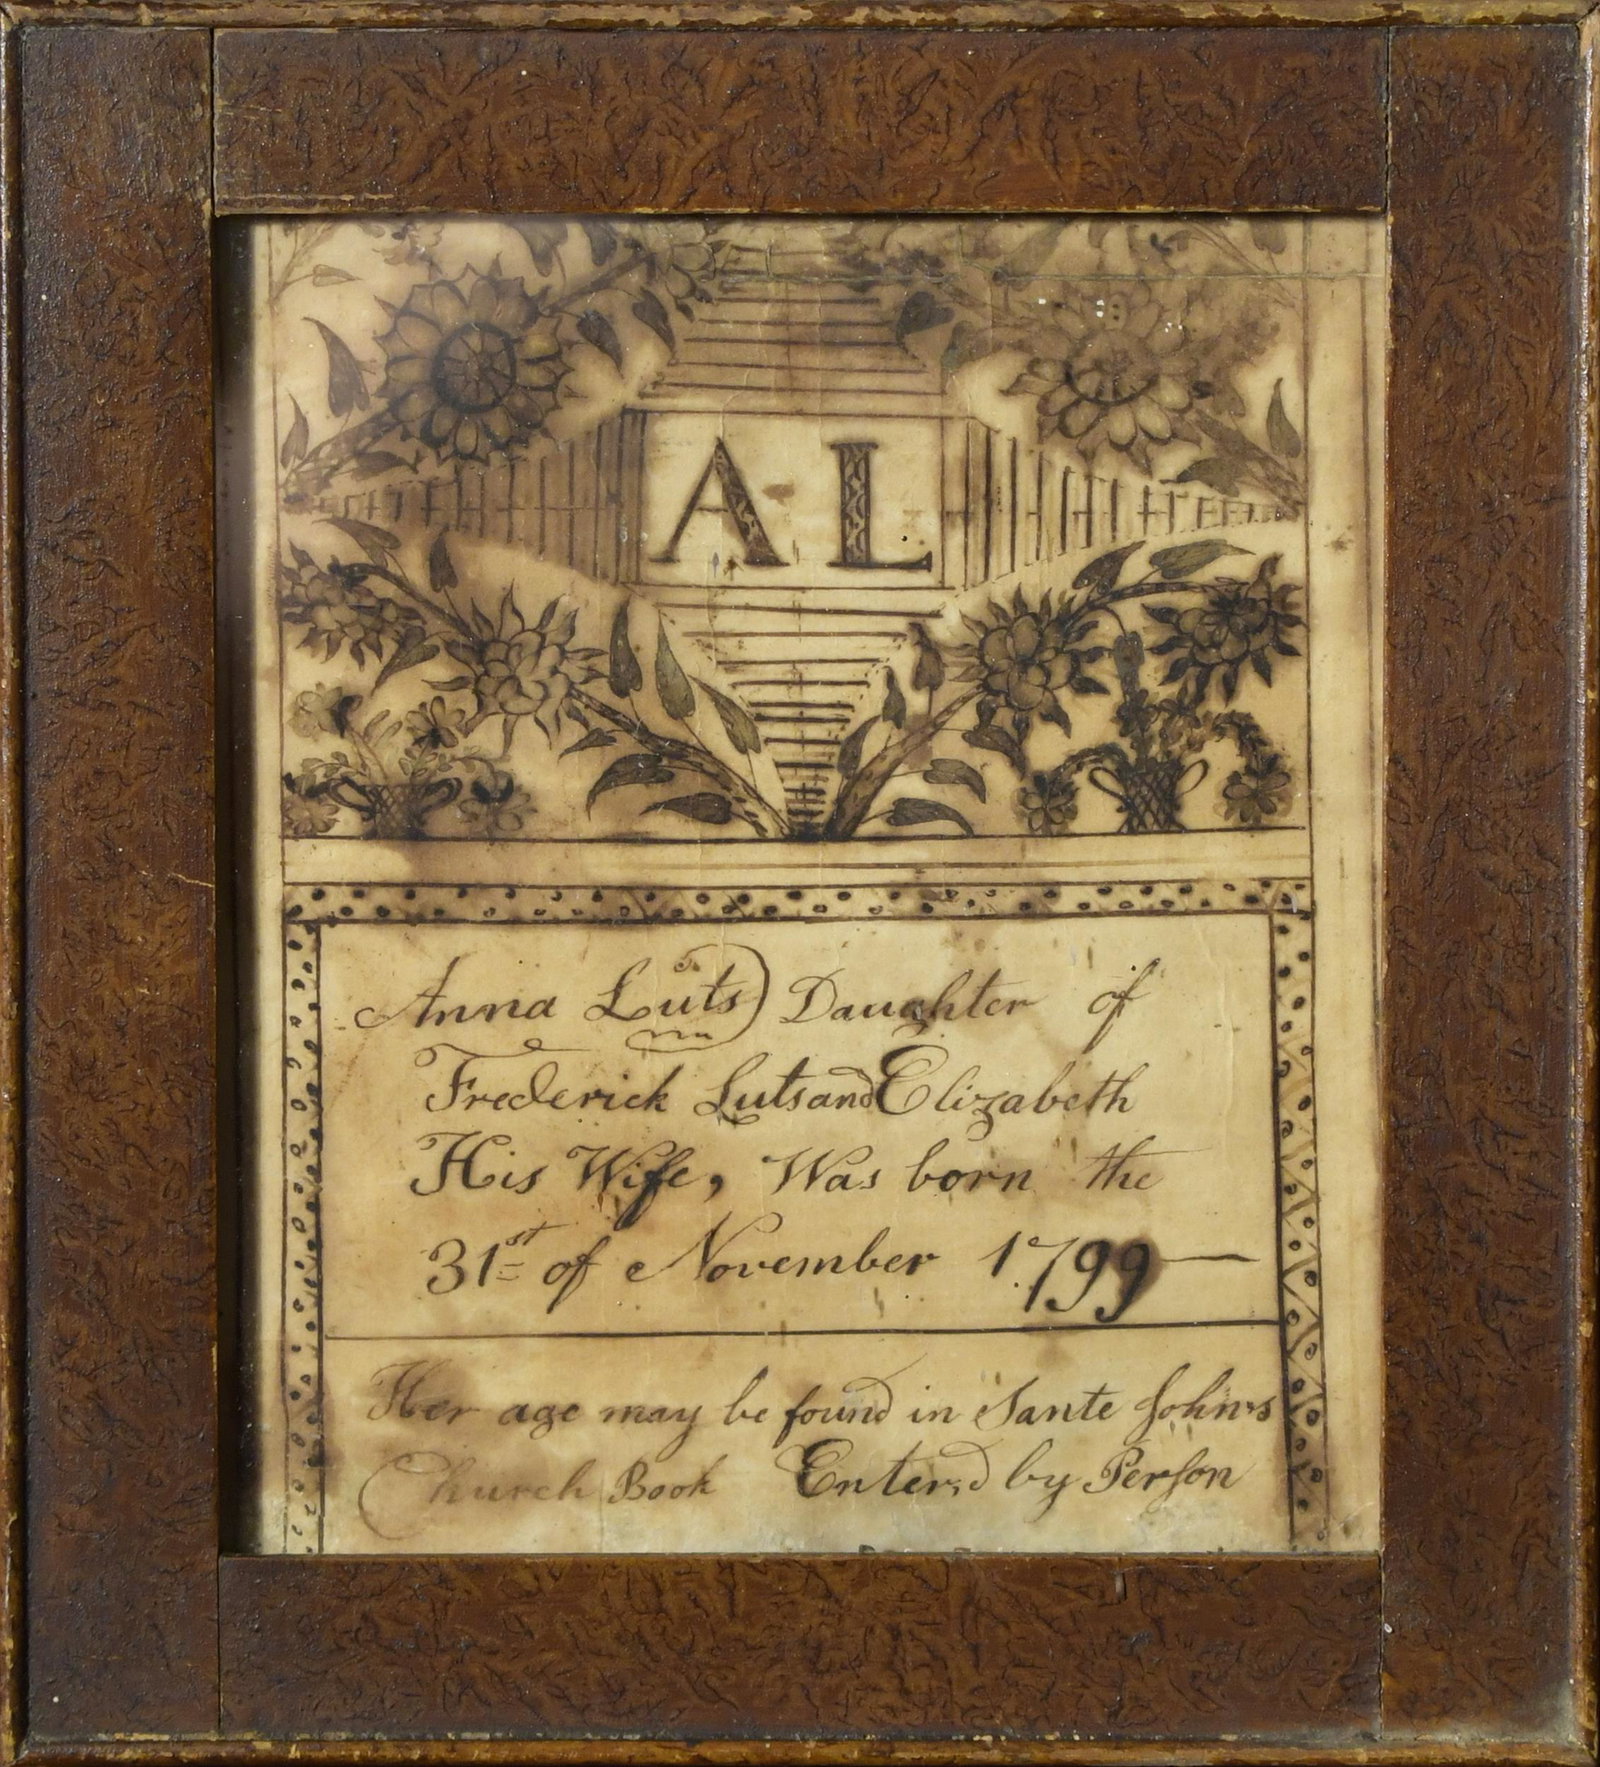 A L
Anna Luts Daughter of
Frederick Luts and Elizabeth
His Wife, Was born the
31st of November 1799
Her age may be found in Sante John's
Church Book Enter'd by Person